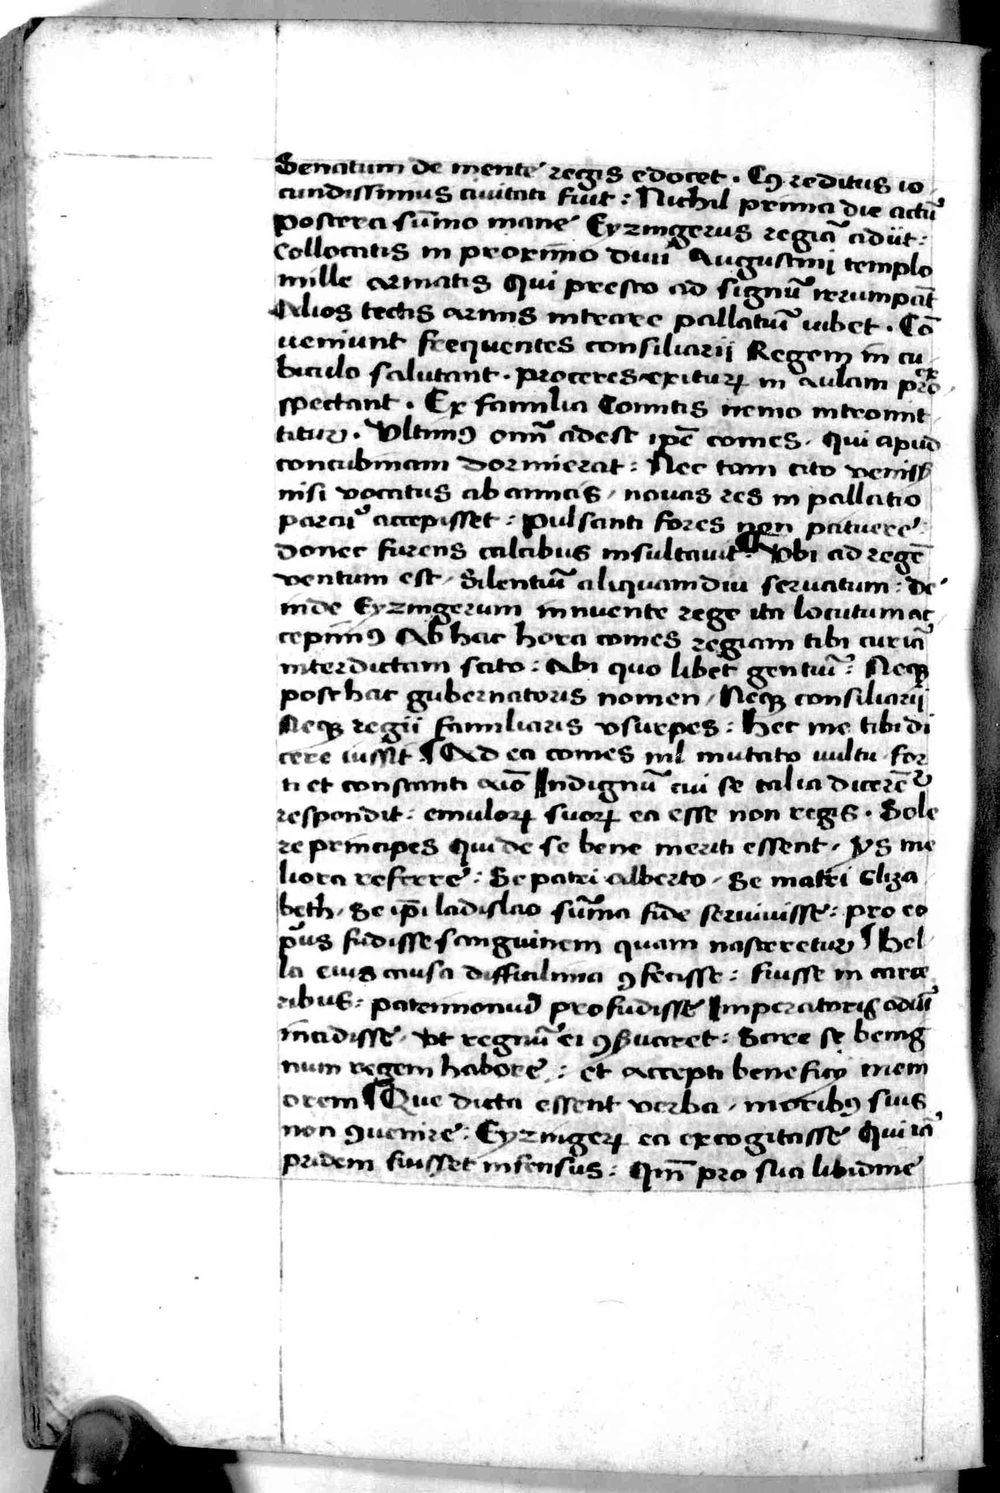 Senatum de mente regis edocet . Cꝰ reditus io
cundissimus ciuitati fuit : Nichil prima die actū
postera sūmo mane Eyzingerus regiā adiit :
Collocatis in proximo diui Augustini templo
mille armatis Qui presto ad signū irrumpāt
Alios tectis armis intrare pallatiū iubet . Cō
ueniunt frequentes consiliarii Regem in cu
biculo salutant . proceres exiturꝝ in aulam
spectant . Ex familia Comitis nemo intromit
titur . Vltimꝰ omī adest ip̄e comes . Qui apud
concubinam dormierat : Nec tam cito veniss
nisi vocatus ab amicis / nouas res in pallatio
parari accepisset : Pulsanti fores non patuere
donec furens calcibus insultauit : ¶ Vbi ad regē
ventum est / Silentiū aliquamdiu seruatum : de
inde Eyzingerum innuente rege ita locutum ac
cepimꝰ Ab hac hora comes regiam tibi curiā
interdictam scito : Abi quo libet gentiū : Neqꝫ
post hac gubernatoris nomen / Neqꝫ consiliarii
Neqꝫ regii familiaris vsurpes : hec me tibi di
cere iussit ¶ Ad ea comes nil mutato uultu for
ti et constanti aīo Indignū cui se talia dicerēt
respondit : emulorꝝ suorꝝ ea esse non regis . Sole
re principes Qui de se bene meriti essent / ys me
liora referre : Se patri Alberto / Se matri Eliza
beth / Se ip̄i ladislao sūma fide seruiuisse : pro eo
pͥus fudisse sanguinem quam nasceretur ¶ Bel
la eius causa difficilima ꝯfecisse : fuisse in carce
ribus : patrimoniū profudisse Imperatoris odiū
incidisse / Vt regnū ei ꝯseruaret : Scire se benig
num regem habere : et accepti beneficij mem
orem ¶ Que dicta essent verba / moribꝰ suis
non ꝯuenire : Eyzingerꝝ ea excogitasse Qui iā
pridem fuisset infensus : Qm̄ pro sua libidine